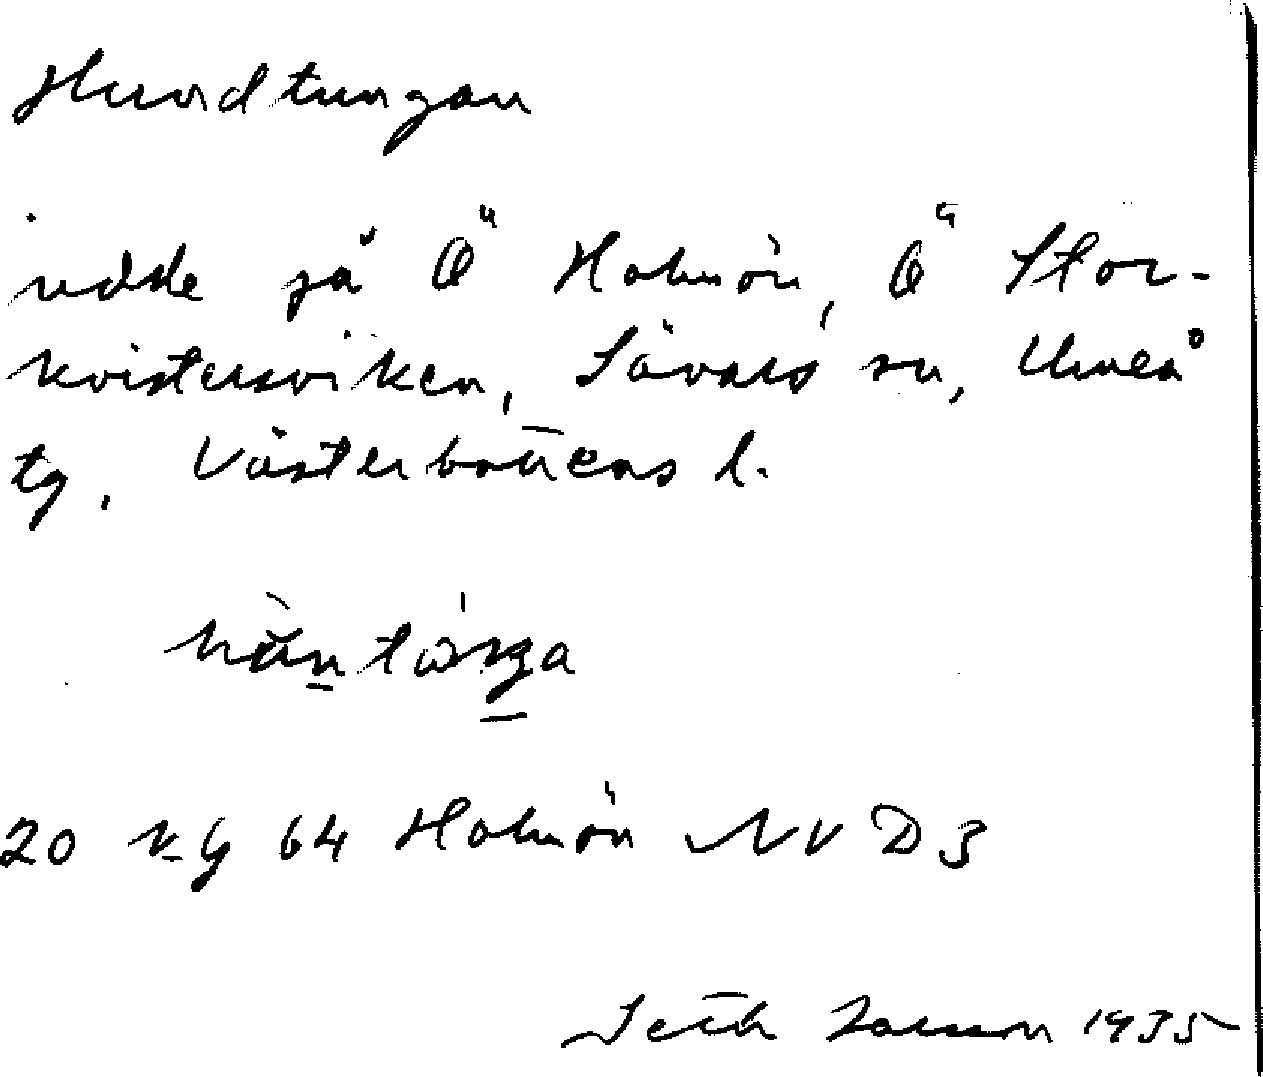 Hundtungan
udde på Ö Holmön, Ö Stor-
kvistersviken, Sävars sn, Umeå
tg, Västerbottens l.
20 K Y 64 Holmön NV D 3
Seth Larsson 1935